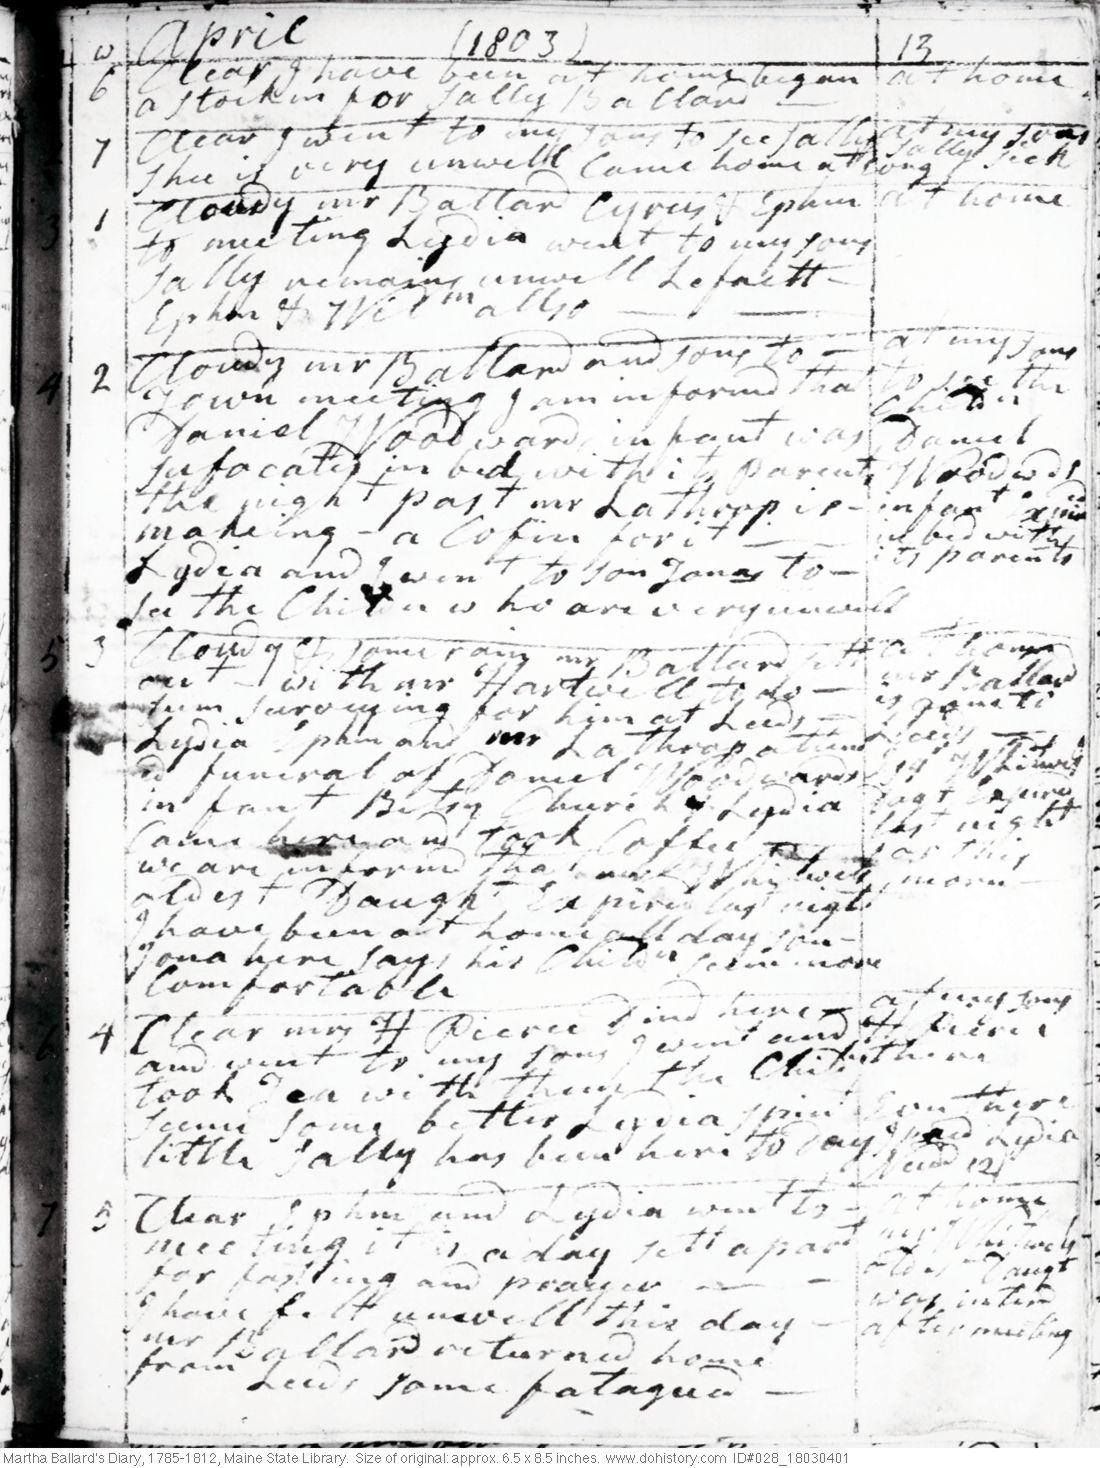 April (1803) 13
w
6 Clear, I have been at home began at home
a stockin for Sally Ballard
7 Clear I went to my sons to see Sally at my sons
shee is very unwell Came home at Sally sick
3 1 Cloudy mr Ballard Cyrus & Ephm at home
to meeting Lydia went to my sons
Sally remains unwell
Ephm & Wilm allso
4 2 Cloudy mr Ballard and sons to at my sons
Town meeting I am informd that to see the
Daniel Woodwards infant was Childn Daniel
sufocated in bed with its parents Woodwds
the night past mr Lathrop is infant Expird
making a Cofin for it in bed with
Lydia and I went to son Jonas to its parents
see the Childn who are very unwell
5 3 Cloudy & some rain mr Ballard sett at home
out with mr Hartwell to do mr Ballard
sum surveying for him at Leeds is gone to
Lydia Ephm and mr Lathrop attend Leeds
d funeral of Daniel Woodwards Whitwels
infant Betsy Church & Lydia Dagt Expired
Came here and took Coffee last night
we are informd that mr Whitwels or this
oldest Daught Expired last night morn
I have been at home all day son
Jona here says his Childn seem more
Comfortable
6 4 Clear mrs H Pierce Dind here at my sons
and went to my sons I went and H Pierce
took Tea with them the Childn there
seeme some better Lydia spin Eon there
little Sally has been here to day I paid Lydia
7 5 Clear Ephm and Lydia went to at home
meeting it is a day sett apart mr Whitwels
for fasting and prayer oldest Daugt
I have felt unwell this day was interd
mr Ballard returned home after meeting
from Leeds some fatagued
Martha Ballard's Diary, 1785-1812, Maine State Library. Size of original: approx. 6.5 x 8.5 inches. www.dohistory.com ID#028_18030401